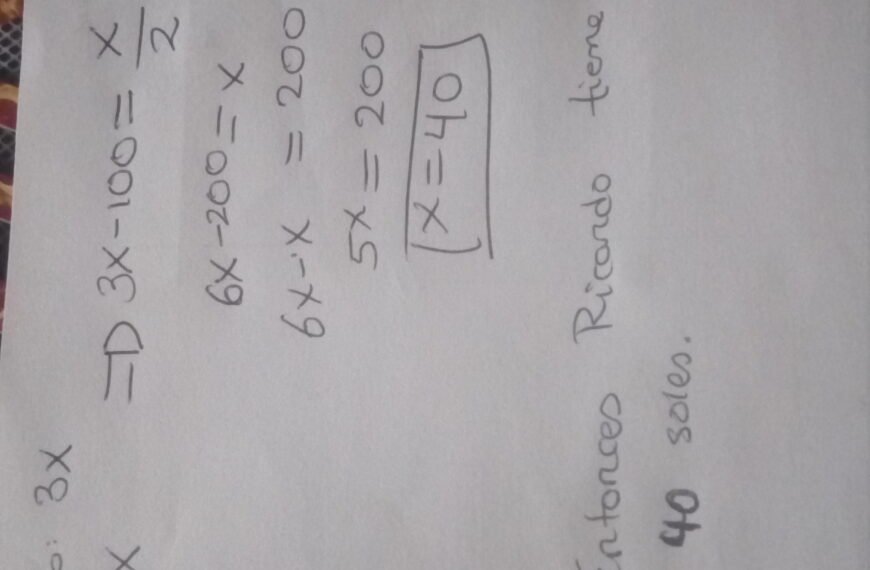 o: 3x
x ⇒ 3x-100 = x/2
6x-200 = x
6x-x = 200
5x = 200
x = 40
Entonces Ricardo tiene
40 soles.